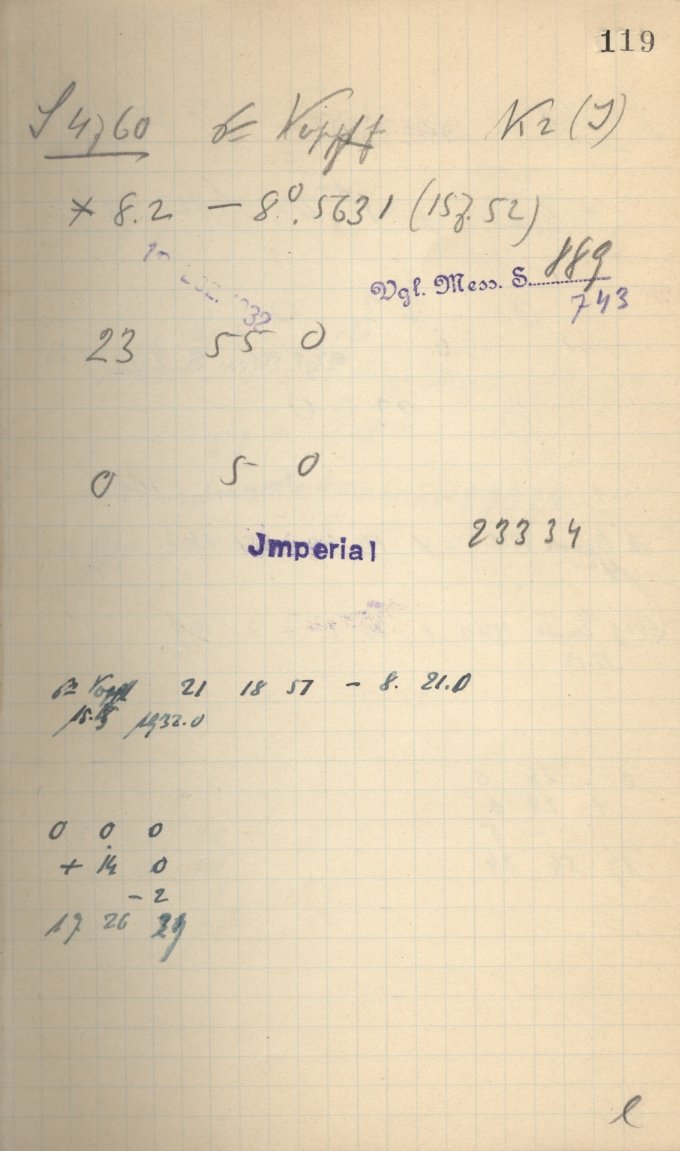 119
J 4760 Kopff K2 (J)
* 8.2 – 8°.5631 (157.52)
Vgl. Mess. S. 889
743
1932
23 55 0
0 5 0
Jmperial 23334
Kopff 21 18 57 – 8. 21.0
1932.0
0 0 0
+ 14 0
– 2
17 26 29
l